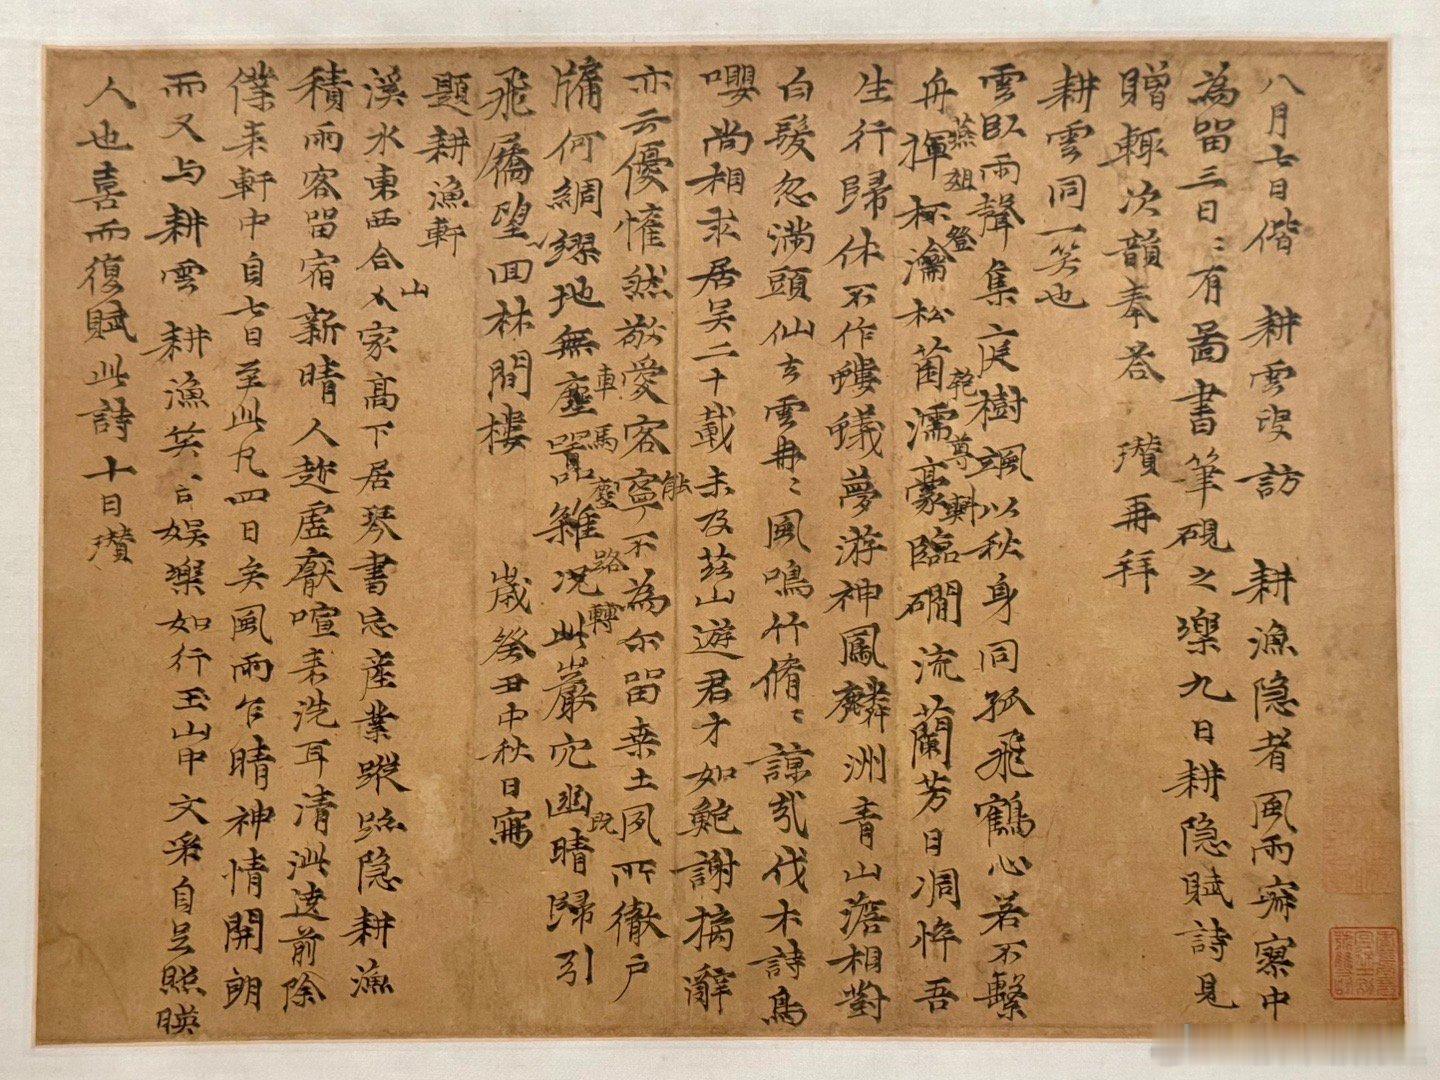 八月七日偕　耕雲叟訪　耕漁隐者風雨寮中
為留三日〻有圖書筆硯之樂九日耕隐賦詩見
贈輒次韻奉荅　瓚再拜
耕雲同一笑也
雲臥雨聲集庭樹颯以秋身同孤飛鶴心若不繫
燕俎登　乾尊
舟揮杯瀹松菌濡豪臨磵流蘭芳日凋悴吾
生行歸休不作螻蟻夢游神鳳麟洲青山澹相對
白髮忽滿頭仙去雲冉〻風鳴竹脩〻諒哉伐木詩鳥
嚶尚相求居吴二十載未及茲山遊君才如鮑謝摛辭
能
亦云優惟然敬愛客寧不為尔留桑土夙所徹户
車馬塵　路轉　既
牖何綢繆地無塵囂雜况此巖穴幽晴歸引
飛屩望回林間樓　歲癸丑中秋日寫
題耕漁軒
山
溪水東西合人家高下居琴書忘産業蹤跡隐耕漁
積雨客留宿新晴人趁虚厭喧来洗耳清泚遶前除
僕来軒中自七日至此凡四日矣風雨乍晴神情開朗
而又与耕雲耕漁笑言娱樂如行玉山中文采自足照暎
人也喜而復賦此詩十日瓚